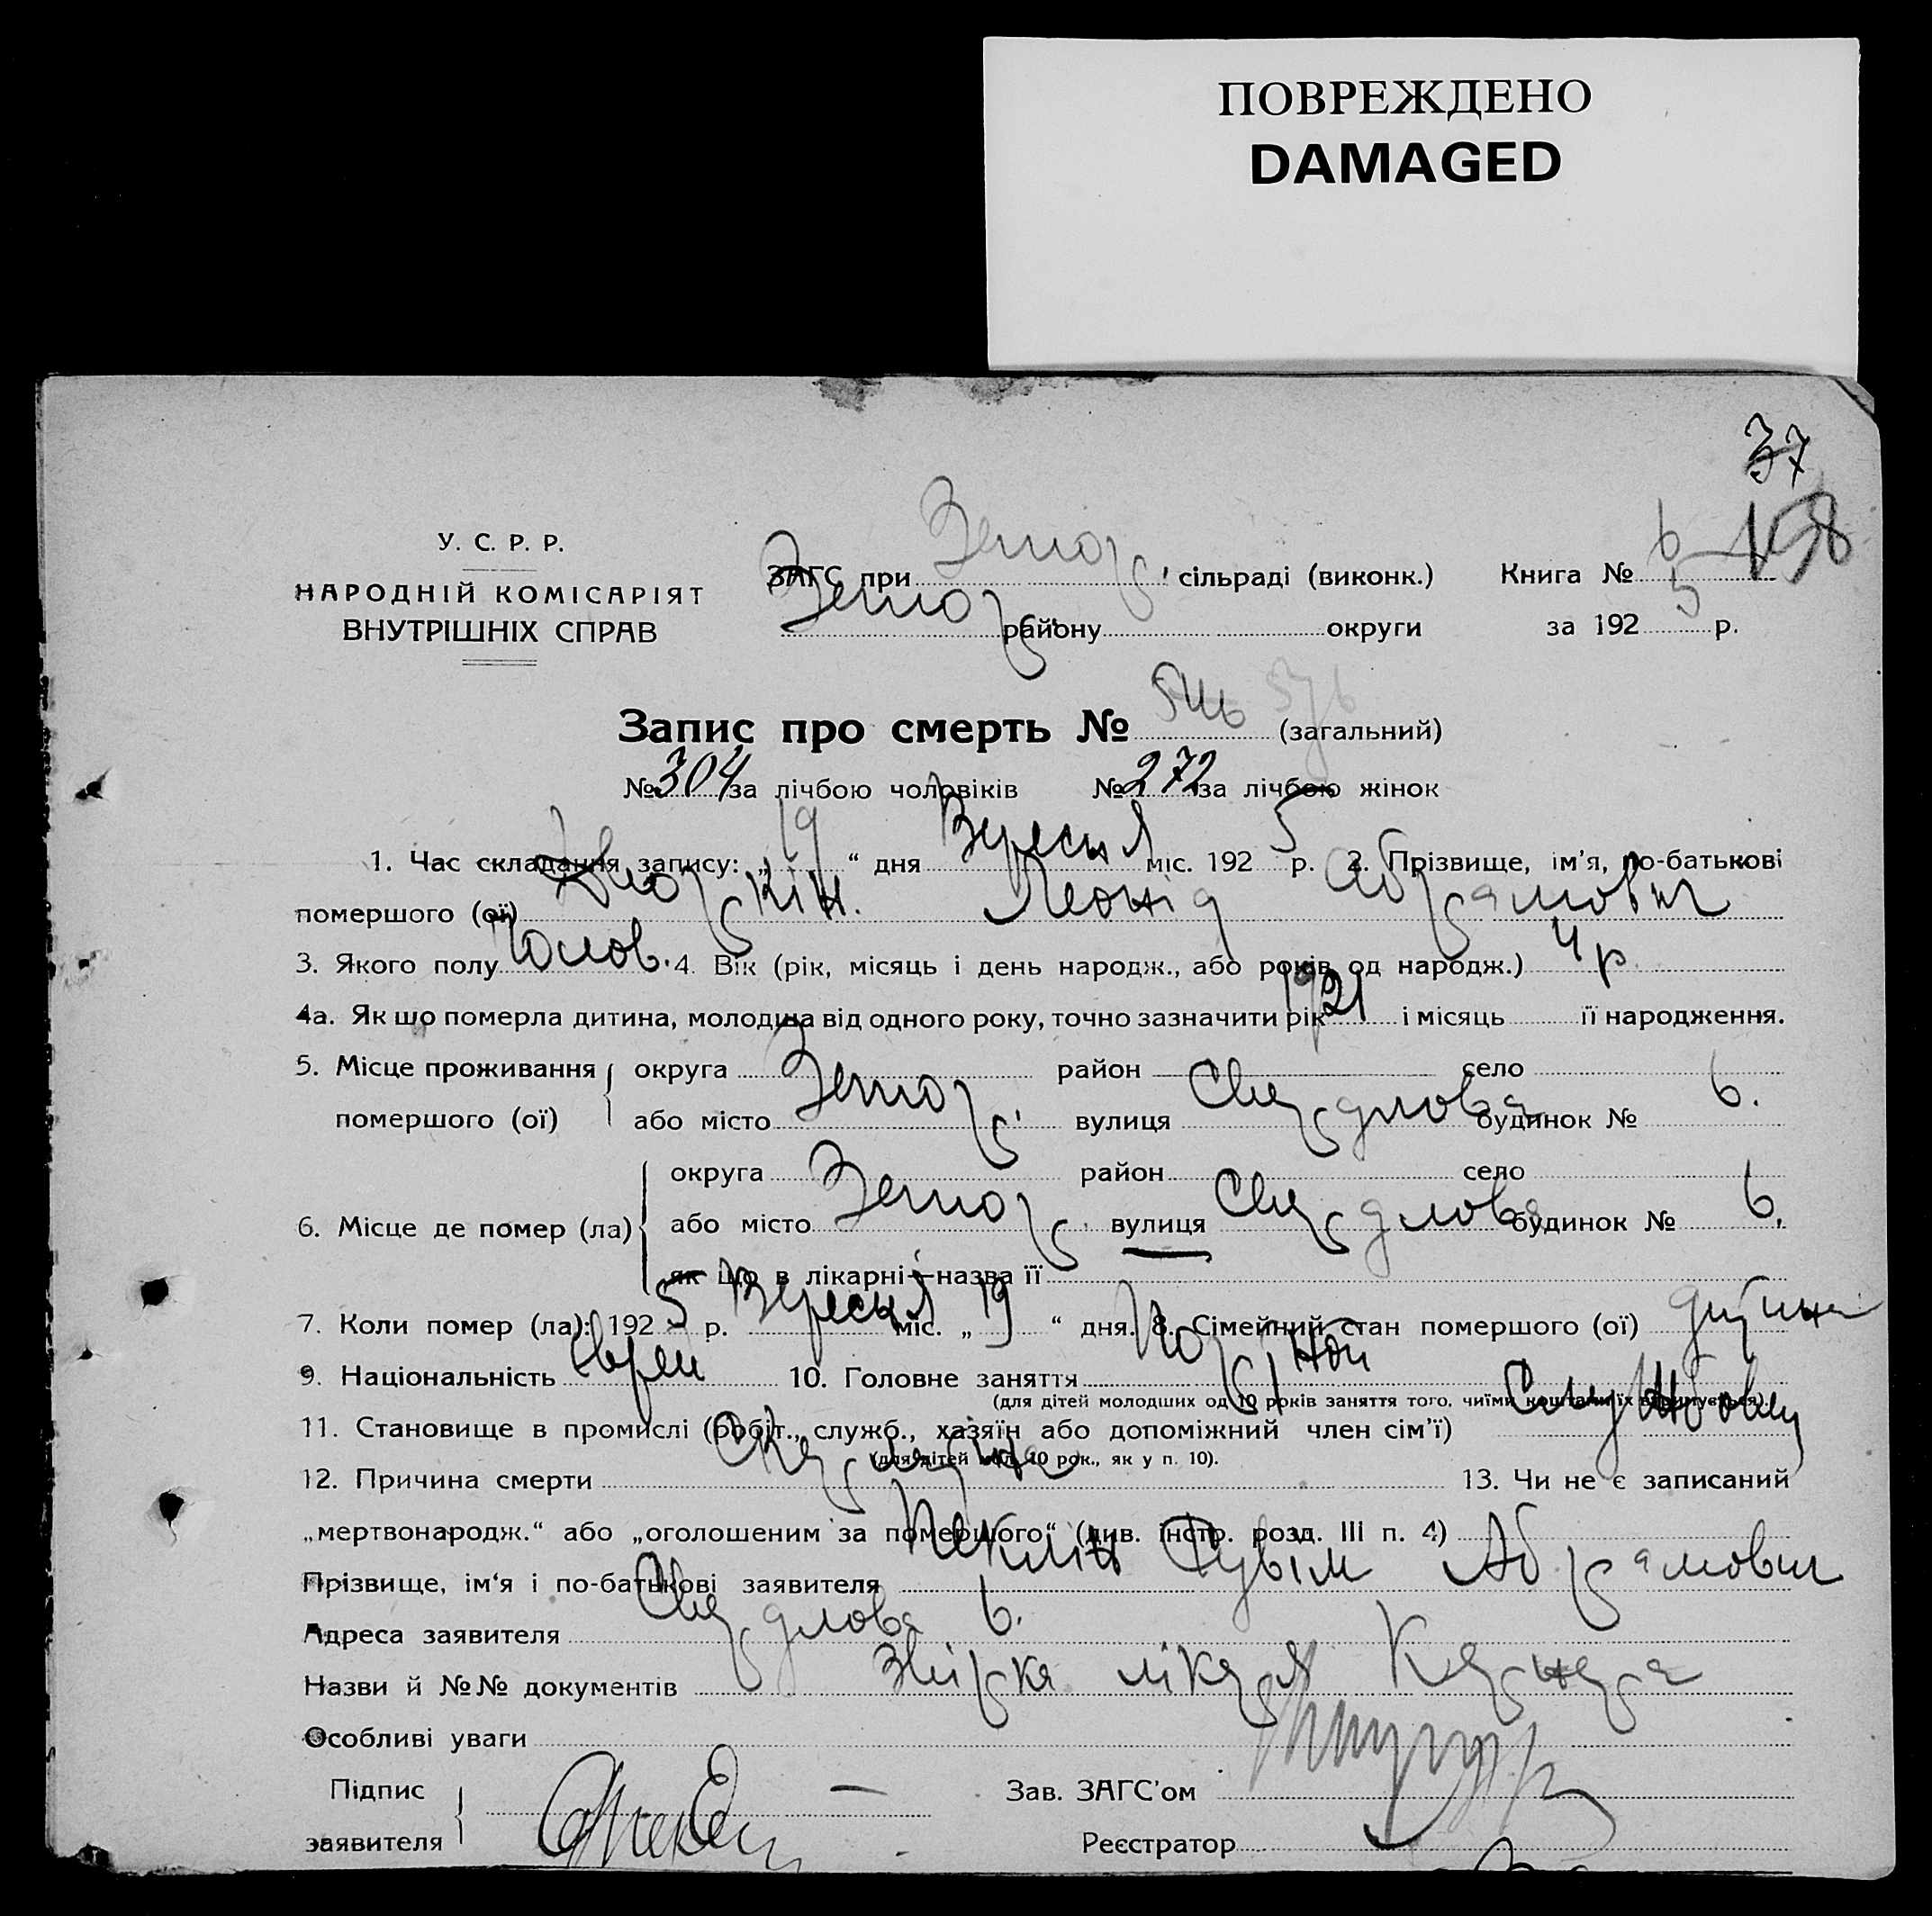 ПОВРЕЖДЕНО
DAMAGED
37
У. С. Р. Р.
НАРОДНІЙ КОМІСАРІЯТ
ВНУТРІШНІХ СПРАВ
ЗАГС при сільраді (виконк.) Книга № 6
району округи за 192 5 р.
Запис про смерть № 546 576 (загальний)
№ 304 за лічбою чоловіків № 272 за лічбою жінок
1. Час складання запису: „ 19 “ дня Вересня міс. 192 5 р. 2. Прізвище, ім'я, по-батькові
помершого (ої) Дворкін. Леонід Абрамович
3. Якого полу Чолов. 4. Вік (рік, місяць і день народж., або років од народж.) 4 р
4а. Як що померла дитина, молодша від одного року, точно зазначити рік 1921 і місяць її народження.
5. Місце проживання округа район село
помершого (ої) або місто вулиця Свердлова будинок № 6.
округа район село
6. Місце де помер (ла) або місто вулиця Свердлова будинок № 6,
як що в лікарні—назва її
7. Коли помер (ла): 192 5 р. Вересня міс. „ 19 “ дня. 8. Сімейний стан помершого (ої) дитина
9. Національність Єврей 10. Головне заняття
(для дітей молодших од 10 років заняття того, чиїми коштами їх утримується).
11. Становище в промислі (робіт., служб., хазяїн або допоміжний член сім'ї) Службовец
(для дітей мол. 10 рок., як у п. 10).
12. Причина смерти Скарлатина 13. Чи не є записаний
„мертвонародж.“ або „оголошеним за помершого“ (див. інстр. розд. III п. 4)
Прізвище, ім'я і по-батькові заявителя Рувім Абрамович
Адреса заявителя Свердлова 6.
Назви й №№ документів лікаря
Особливі уваги
Підпис
заявителя
Зав. ЗАГС'ом
Реєстратор